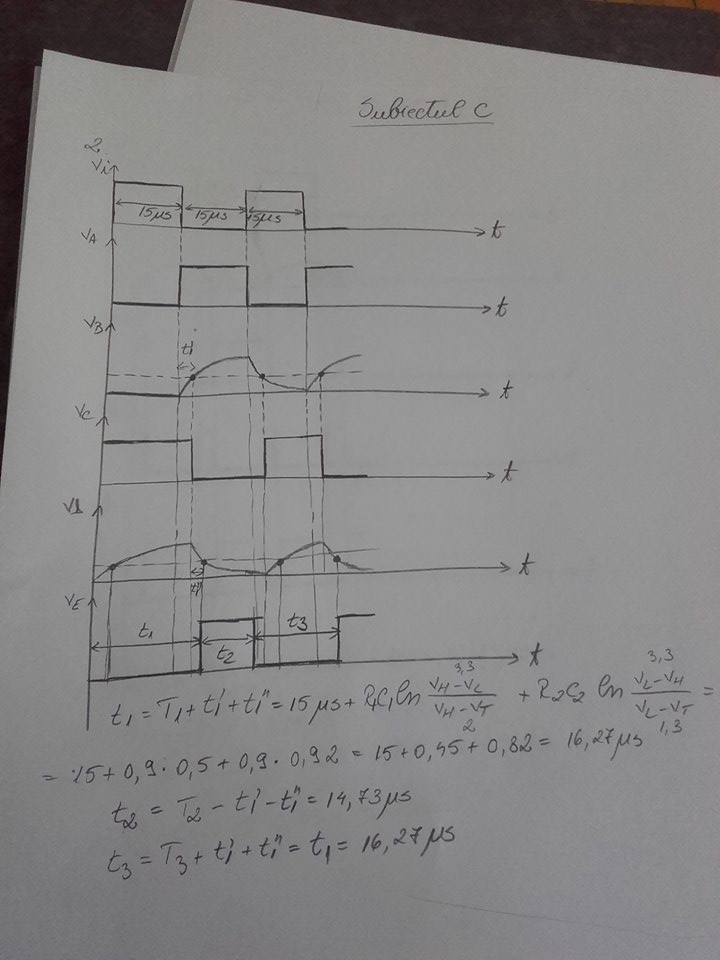 Subiectul C
2.
Vi
15μs 15μs 15μs
t
VA
t
VB
t1'
t
VC
t
VD
t1''
t
VE
t1 t2 t3
t
t1 = T1 + t1' + t1'' = 15 μs + R1C1 ln (VH - VL)/(VH - VT) + R2C2 ln (VL - VH)/(VL - VT) =
3,3 2 3,3 1,3
= 15 + 0,9 · 0,5 + 0,9 · 0,92 = 15 + 0,45 + 0,82 = 16,27 μs
t2 = T2 - t1' - t1'' = 14,73 μs
t3 = T3 + t1' + t1'' = t1 = 16,27 μs